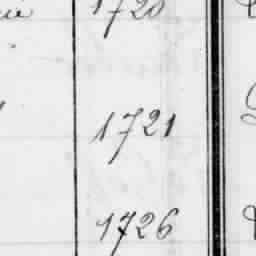 1720
1721
1726